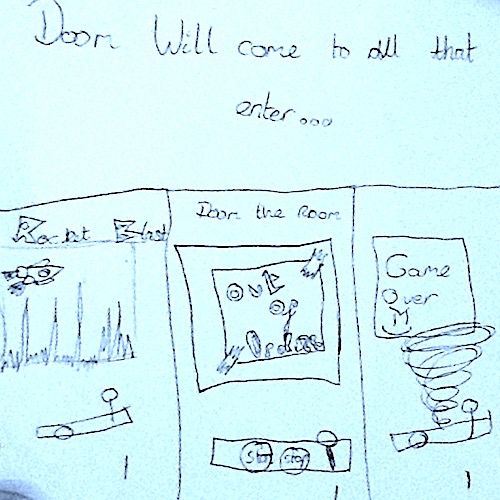 Doom Will come to all that
enter...
Rocket Blast
Doom the Room
Out
Of
Order
Game
Over
Start Stop